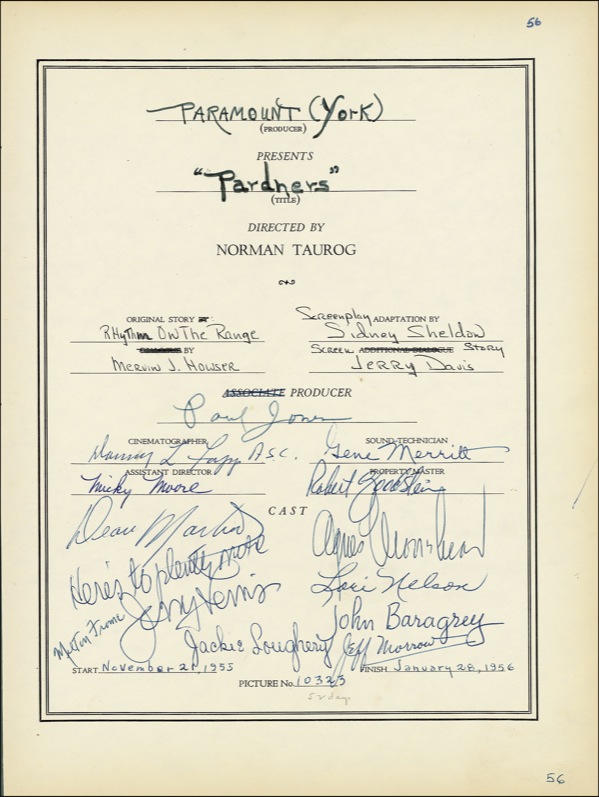 56
PARAMOUNT (York)
(PRODUCER)
PRESENTS
"Pardners"
(TITLE)
DIRECTED BY
NORMAN TAUROG
ORIGINAL STORY
RHythm On The Range
BY
Mervin J. Howser
Screenplay ADAPTATION BY
Sidney Sheldon
Screen ADDITIONAL DIALOGUE Story
Jerry Davis
ASSOCIATE PRODUCER
Paul Jones
CINEMATOGRAPHER
A.S.C.
SOUND-TECHNICIAN
Gene Merritt
ASSISTANT DIRECTOR
Micky Moore
PROPERTY MASTER
Robert
CAST
Dean Martin
Agnes Moorehead
Here's to plenty more
Jerry Lewis
Lori Nelson
John Baragrey
Jackie Loughery
Jeff Morrow
START November 21, 1955
FINISH January 28, 1956
PICTURE No. 10323
52 days
56